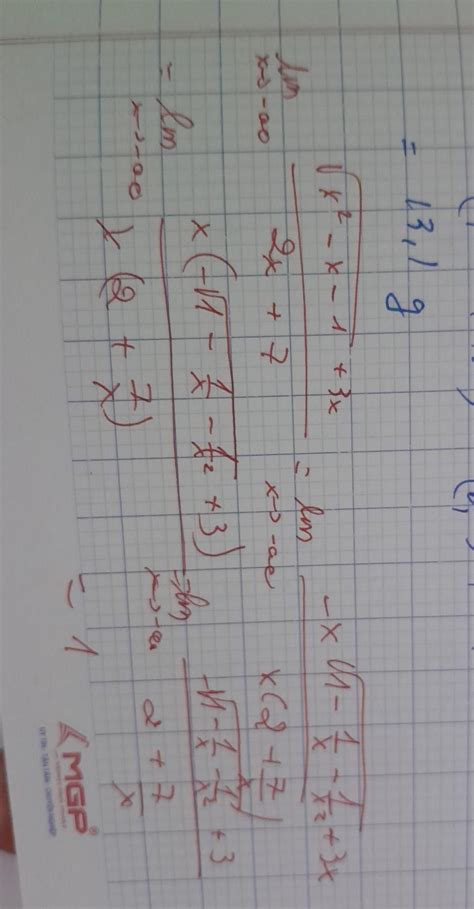 = 13,1 g
lim x→-∞ (√(x² - x - 1) + 3x) / (2x + 7) = lim x→-∞ (-x√(1 - 1/x - 1/x²) + 3x) / (x(2 + 7/x))
= lim x→-∞ x(-√(1 - 1/x - 1/x²) + 3) / x(2 + 7/x) = lim x→-∞ (-√(1 - 1/x - 1/x²) + 3) / (2 + 7/x)
= 1
MGP®